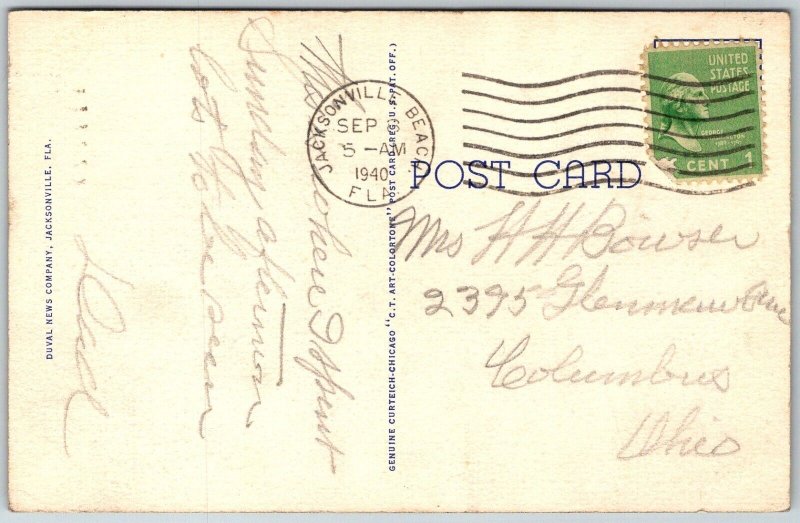 This is where I spent
Sunday afternoon
lots to be seen
Dad
DUVAL NEWS COMPANY, JACKSONVILLE, FLA.
GENUINE CURTEICH-CHICAGO "C.T. ART-COLORTONE" POST CARD (REG. U.S. PAT. OFF.)
JACKSONVILLE BEACH
SEP
5 -AM
1940
FLA.
POST CARD
UNITED
STATES
POSTAGE
GEORGE
CENT 1
Mrs H H Bowser
2395 Glenmawr Ave
Columbus
Ohio